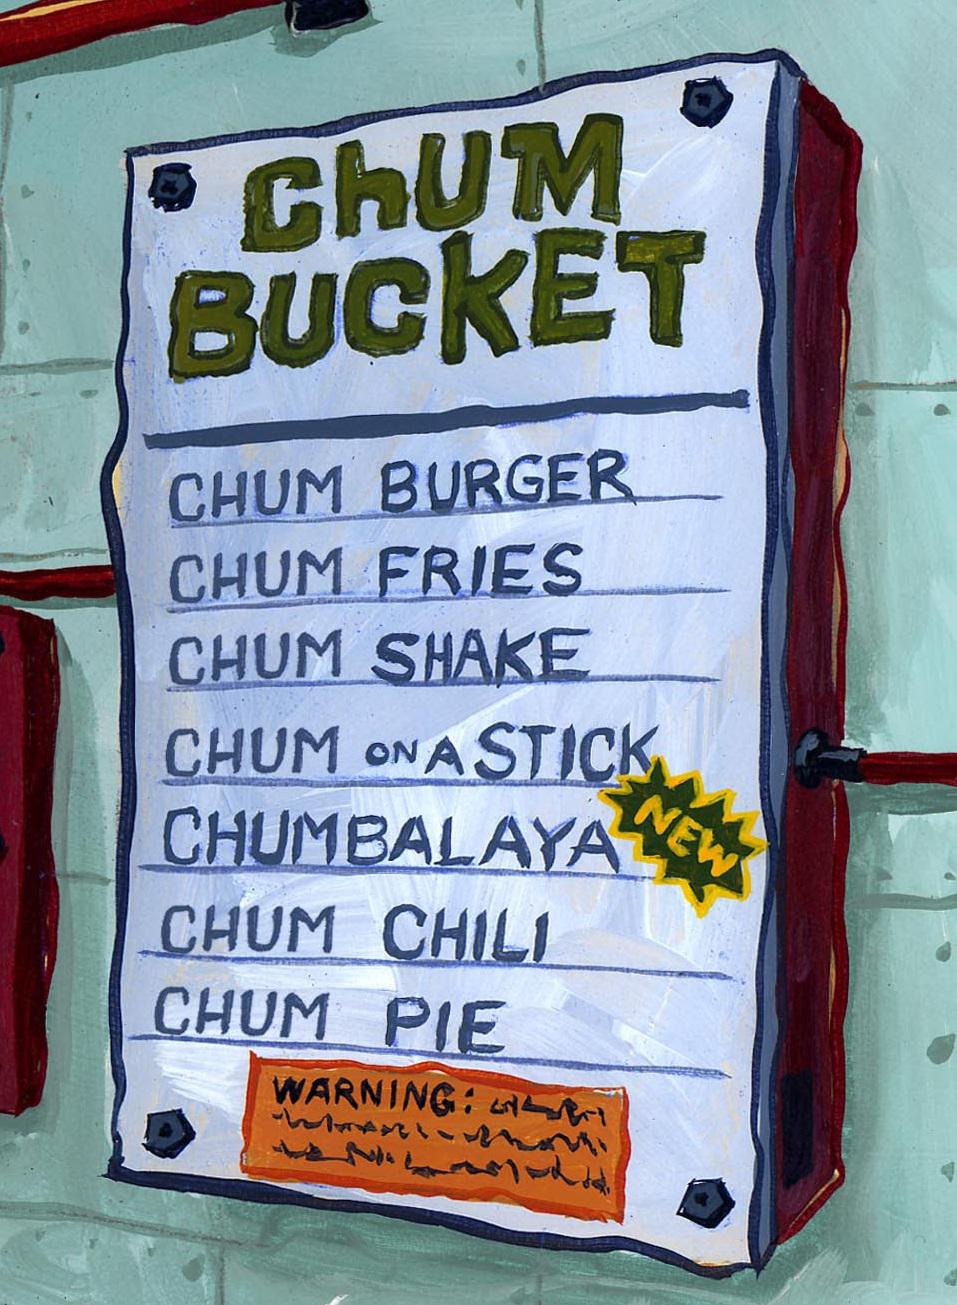 ChUM
BUCKET
CHUM BURGER
CHUM FRIES
CHUM SHAKE
CHUM ON A STICK
CHUMBALAYA
NEW
CHUM CHILI
CHUM PIE
WARNING: